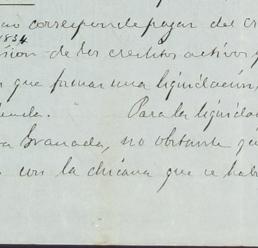 corresponde pagar del cr
1834
sion de los creditos activos y
que formar una liquidacion
Para la liquidac
Granada, no obstante qu
con la chicana que se hab